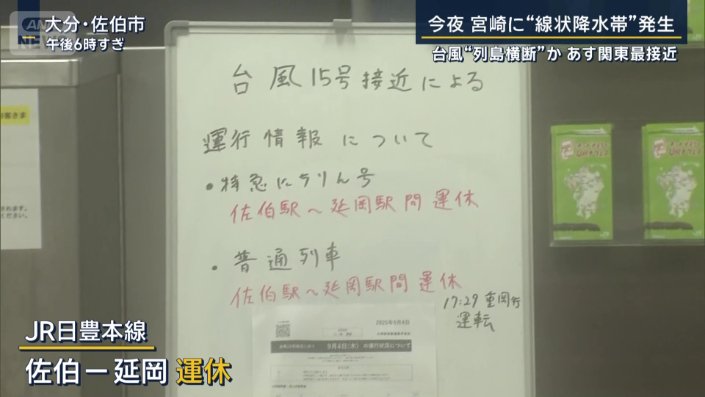 大分・佐伯市
午後6時すぎ
今夜 宮崎に“線状降水帯”発生
台風“列島横断”か あす関東最接近
台風15号接近による
運行情報について
・特急にちりん号
佐伯駅～延岡駅間 運休
・普通列車
佐伯駅～延岡駅間 運休
17:29 重岡行
運転
JR日豊本線
佐伯ー延岡 運休